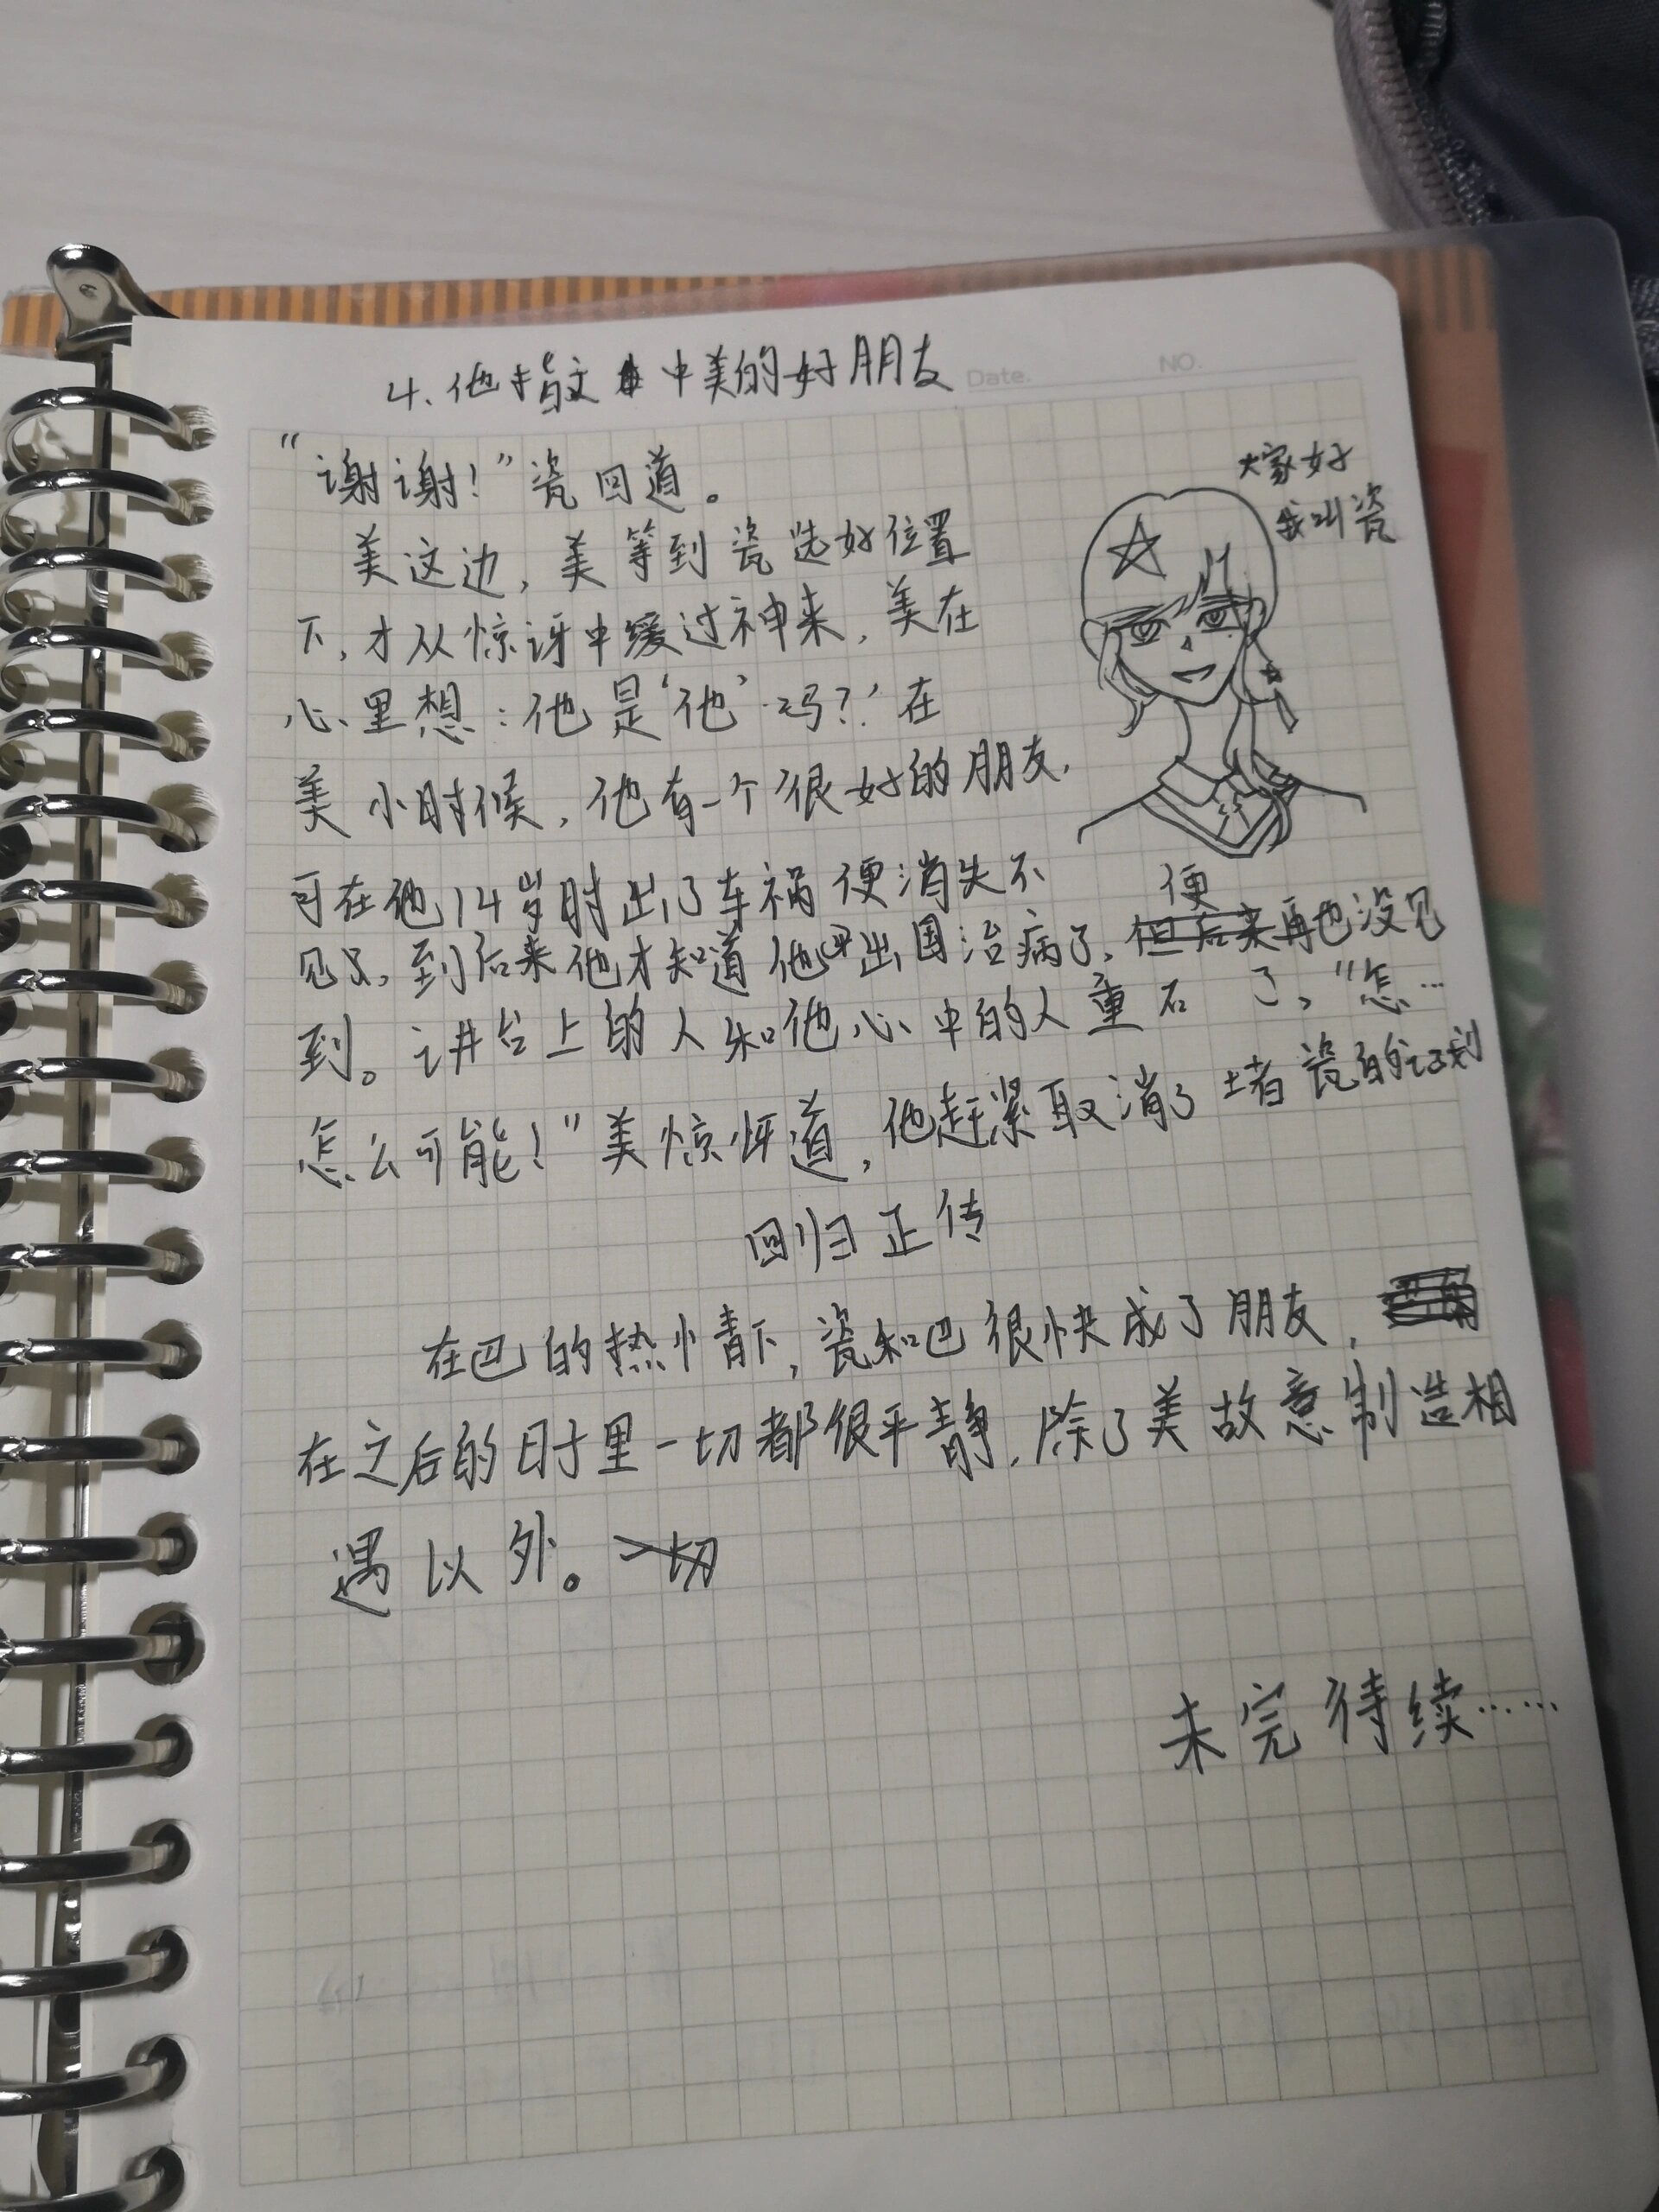 4. 他指文中美的好朋友
Date.
NO.
“谢谢!”瓷回道。
大家好
我叫瓷
美这边,美等到瓷选好位置
下,才从惊讶中缓过神来,美在
心里想:他是‘他’吗?’在
美小时候,他有一个很好的朋友,
可在他14岁时出了车祸便消失不
见了,到后来他才知道他是出国治病了,便再也没见
到。讲台上的人和他心中的人重合了。“怎…
怎么可能!”美惊讶道,他赶紧取消了堵瓷的计划
回归正传
在巴的热情下,瓷和巴很快成了朋友,
在之后的日子里一切都很平静,除了美故意制造相
遇以外。
未完待续……